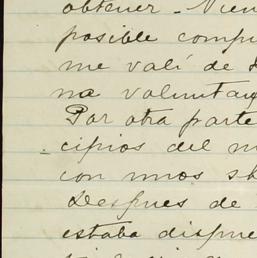 obtener. Vien
posible compr
me valí de
na voluntar
Por otra parte
cipios del m
con unos sh
Despues de
estaba dispue